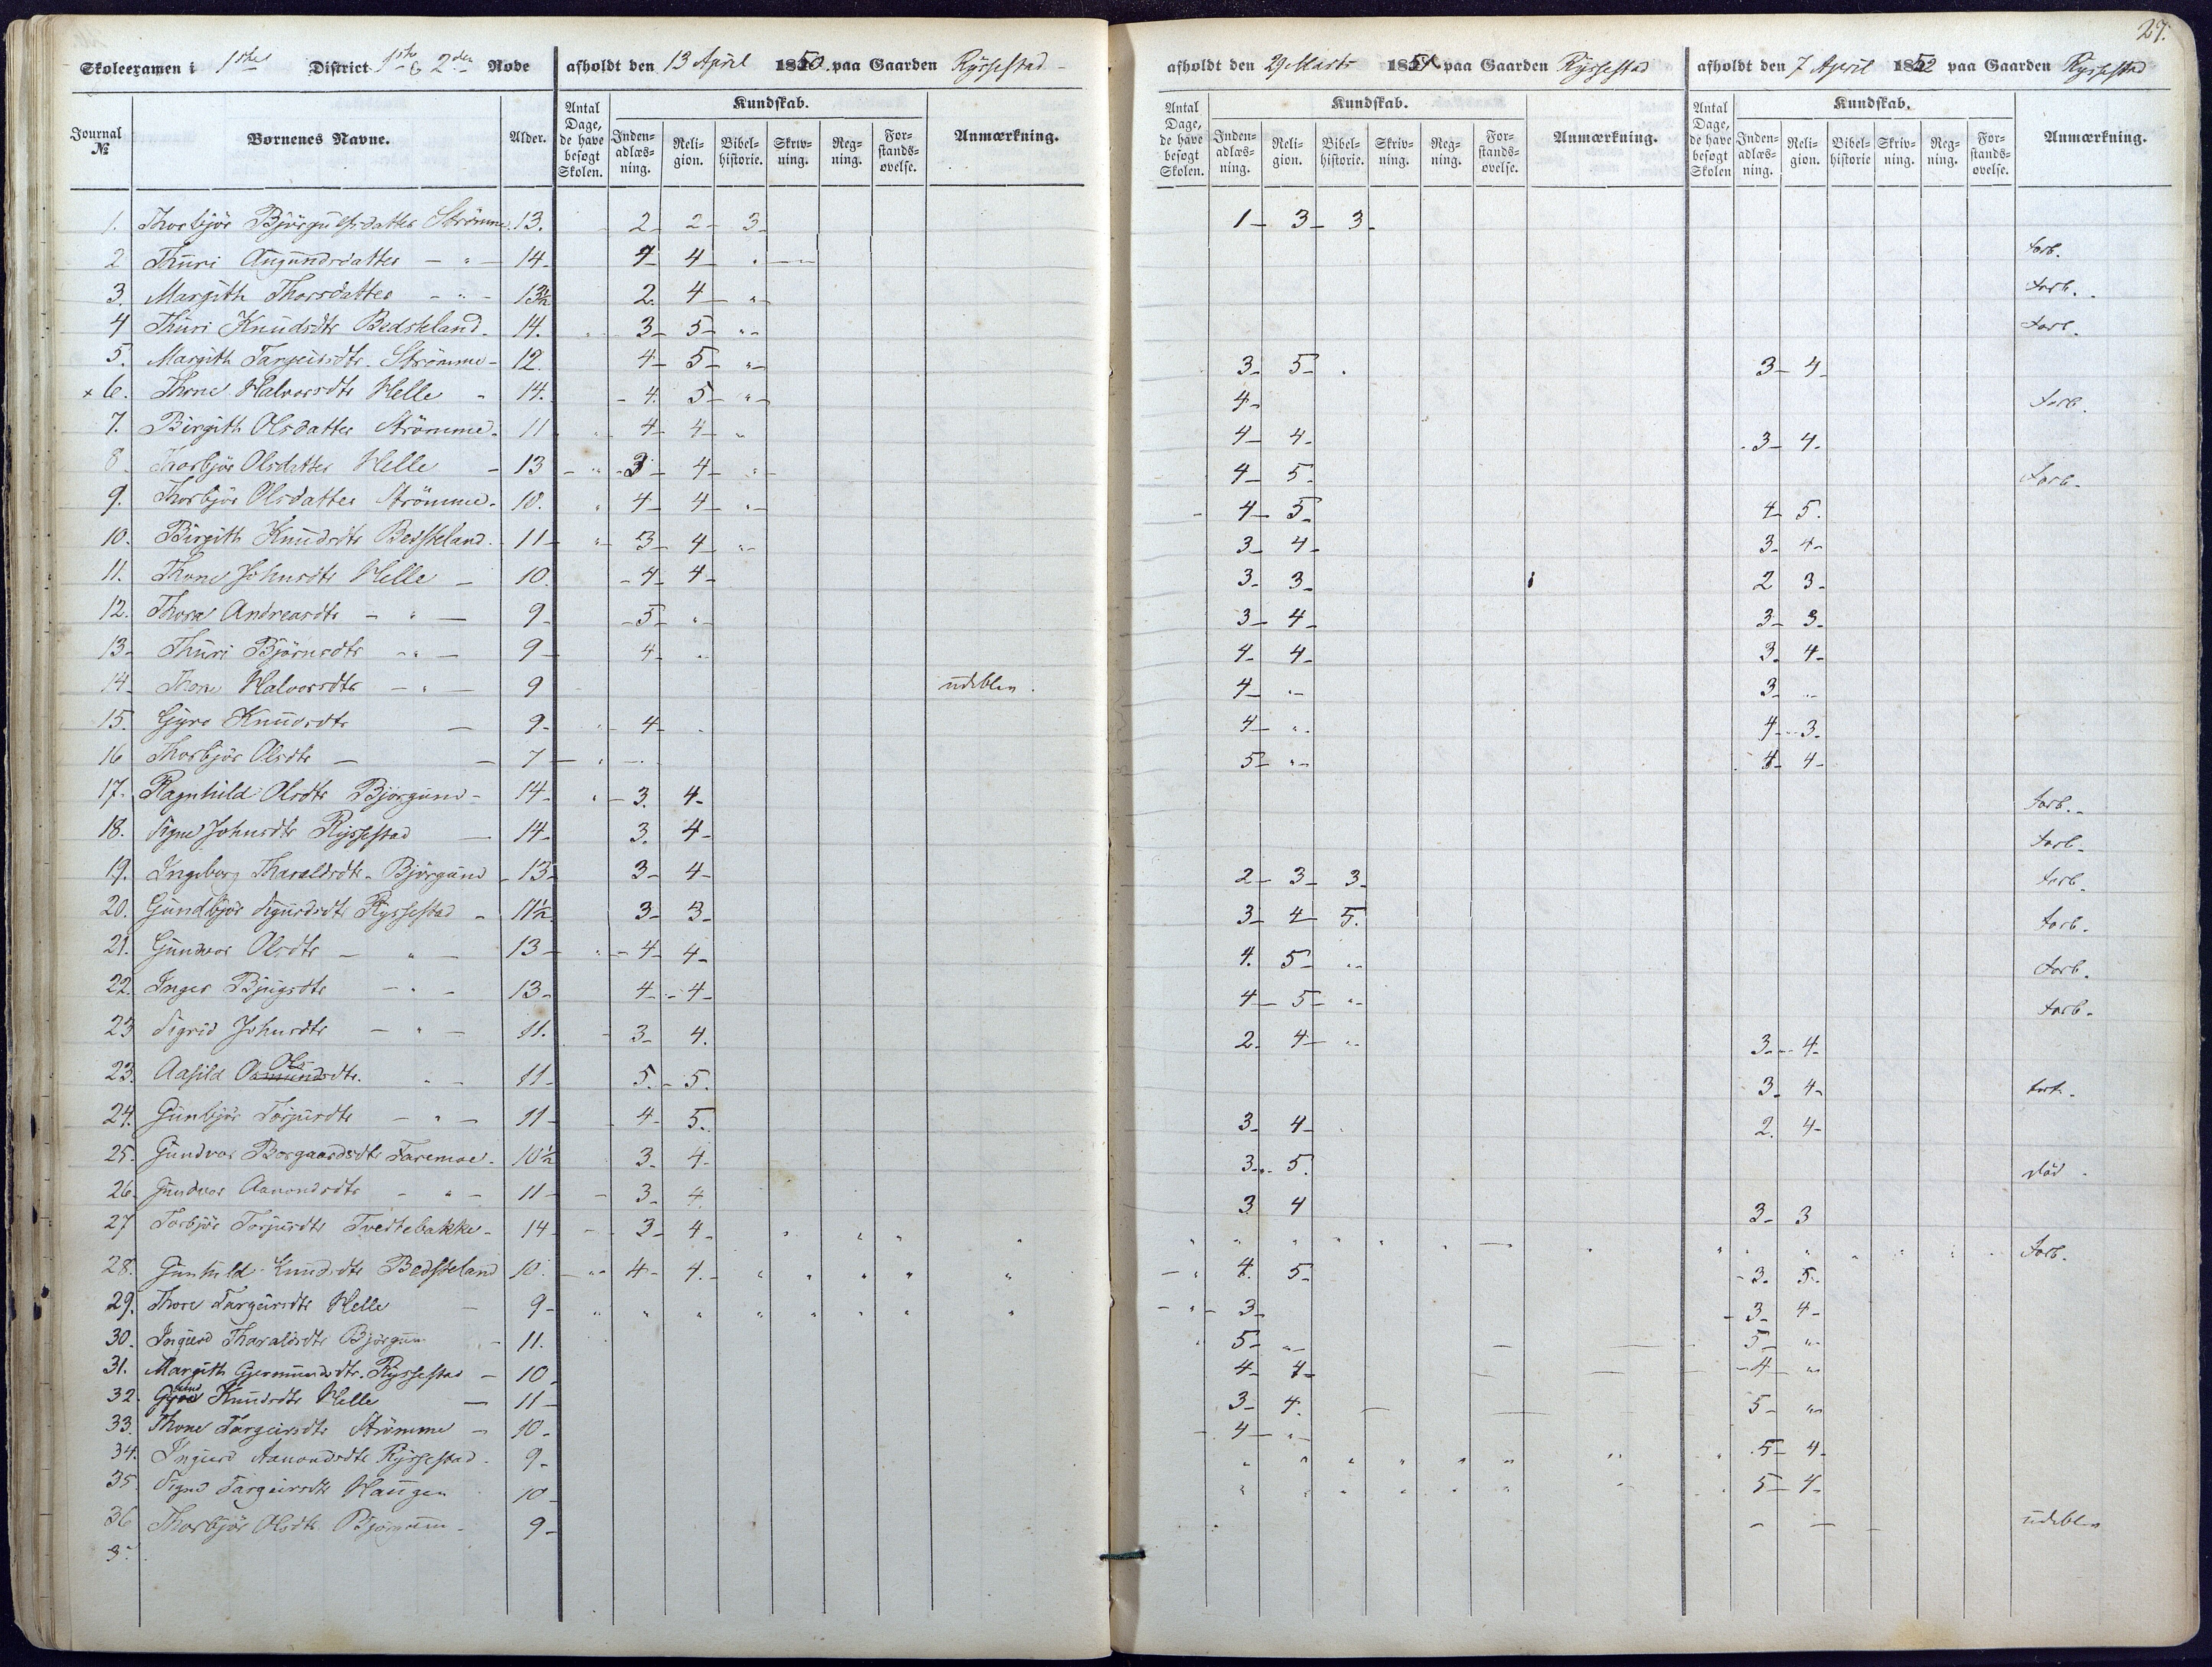 27.
Skoleexamen i 1ste District 1ste & 2den Rode afholdt den 13 April 1850 paa Gaarden Rysestad afholdt den 29 Marts 1851 paa Gaarden Rysestad afholdt den 7 April 1852 paa Gaarden Rysestad
Journal № Børnenes Navne. Alder. Antal Dage, de have besøgt Skolen. Kundskab. Indenadlæsning. Religion. Bibelhistorie. Skrivning. Regning. Forstandsøvelse. Anmærkning. Antal Dage, de have besøgt Skolen. Kundskab. Indenadlæsning. Religion. Bibelhistorie. Skrivning. Regning. Forstandsøvelse. Anmærkning. Antal Dage, de have besøgt Skolen Kundskab. Indenadlæsning. Religion. Bibelhistorie Skrivning. Regning. Forstandsøvelse. Anmærkning.
1. Thorbjör Björgulfsdatter Strömme. 13. 2 2 3 1 3 3
2 Thuri Augundsdatter - " - 14 4 4 " forb.
3. Margith Thorsdatter - " - 13½ 2. 4 " forb.
4 Thuri Knudsdtr Bedsteland. 14. 3 5 " forb.
5. Margith Targeirsdtr. Strömme 12. 4 5 " 3 5 3 4
x 6. Thone Halvorsdtr Helle 14. 4. 5 " 4 forb.
7. Birgith Olsdatter Strömme. 11 4 4 " 4 4. 3 4.
8. Thorbjör Olsdatter Helle 13 3 4 " 4 5. forb.
9. Thorbjör Olsdatter Strömme. 10. 4 4 " 4 5 4 5.
10. Birgith Knudsdtr Bedsteland. 11 3 4 " 3 4 3. 4
11. Thone Johnsdtr Helle 10. 4 4 3. 3 2 3.
12. Thora Andreasdtr - " - 9 5 " 3 4 3 3.
13 Thuri Björnsdtr - " - 9 4 " 4 4 3. 4
14 Thone Halvorsdtr - " - 9 udeblev. 4 " 3 "
15. Gyro Knudsdtr 9 4 " 4 " 4 3.
16 Thorbjör Olsdtr 7 5 " 4 4
17. Ragnhild Olsdtr Björgum 14 3. 4 forb.
18. Signe Johnsdtr Rysestad 14 3. 4 forb.
19. Ingeborg Tharaldsdtr. Björgum 13 3 4 2 3 3 forb.
20. Gundbjör Sigurdsdtr Rysestad 11½ 3 3 3 4 5. forb.
21. Gunvor Olsdtr - " - 13 4 4 4. 5 " forb.
22. Inger Bjugsdtr - " - 13 4 4 4 5 " forb.
23 Sigrid Johnsdtr - " - 11. 3 4. 2. 4 " 3 4
23. Aasild Ols dtr. " - 11 5. 5. 3. 4 forb.
24. Gunbjör Torjusdtr - " - 11 4 5. 3. 4 2. 4
25. Gundvor Borgaardsdtr Faremoe. 10½ 3. 4. 3 5. död
26. Gundvor Aanondsdtr - " - 11 3. 4. 3 4 3 3
27 Torbjör Torjusdtr Tveitebakke 14 3 4 " " " " forb.
28. Gunhild Knudsdtr Bedsteland 10. 4 4. " " " " " 4. 5 3. 5.
29. Thore Targeirsdtr Helle 9 " " " " " " " " 3 3 4
30. Ingerd Tharaldsdtr Björgum 11. 5 " 5 "
31. Margith Gjermundsdtr. Rysestad 10 4 4 4 "
32. Knudsdtr Helle 11 3 4. 5 "
33. Thone Targeirsdtr Strömme 10 4 "
34. Ingerd Aanondsdtr Rysestad. 9 " " " " " " " 5 4
35 Signe Targeirsdtr Haugen 10 " " " " " " " 5 4
36 Thorbjör Olsdtr. Björgum 9 udeblev
3